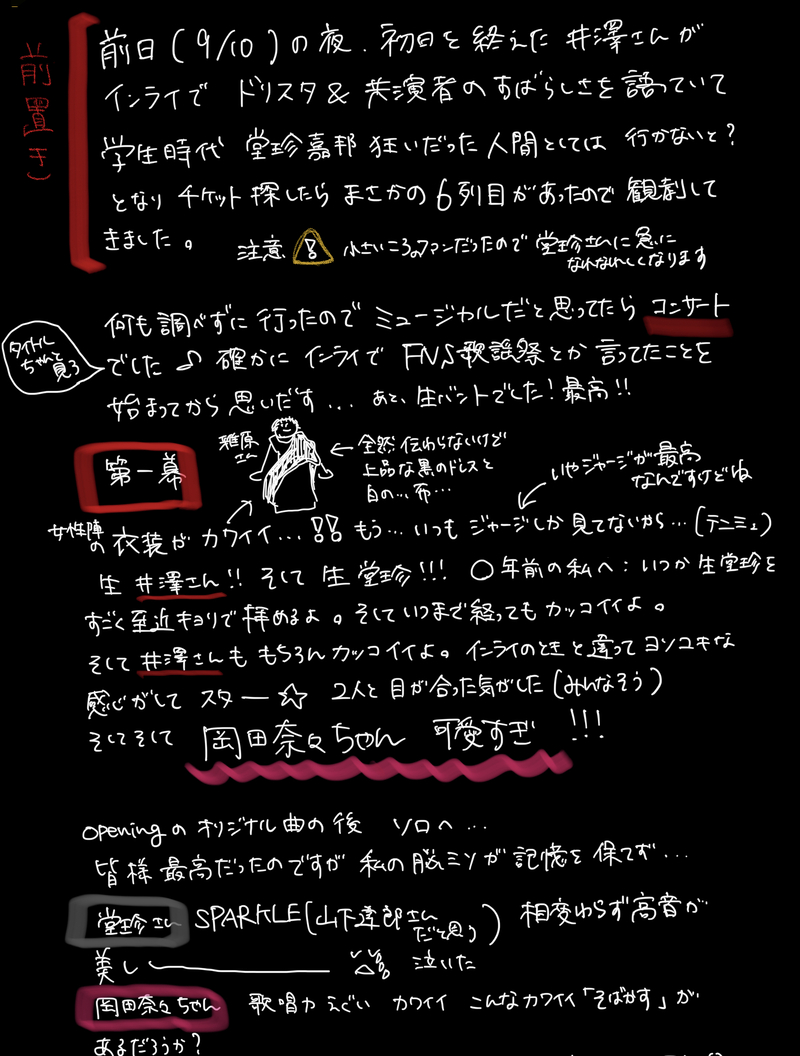 前置き
前日(9/10)の夜、初日を終えた井澤さんが
インライでドリスタ&共演者のすばらしさを語っていて
学生時代 堂珍嘉邦狂いだった人間としては行かないと?
となりチケット探したらまさかの6列目があったので観劇して
きました。
注意 ! 小さいころ。ファンだったので堂珍さんに急に
なれなれしくなります
何も調べずに行ったのでミュージカルだと思ってたらコンサート
でした 確かにインライでFNS歌謡祭とか言ってたことを
タイトル
ちゃんと
見ろ
始まってから思いだす...あと、生バンドでした!最高!!
第一幕
雅原
さん
← 全然伝わらないけど
上品な黒のドレスと
白の...布...
いやジャージが最高
なんですけどね
女性陣
の衣装がカワイイ...!! もう...いつもジャージしか見てないから...(テニミュ)
生井澤さん!! そして生堂珍!!! 〇年前の私へ:いつか生堂珍を
すごく至近キョリで拝めるよ。そしていつまで経ってもカッコイイよ。
そして井澤さんももちろんカッコイイよ。インライのときと違ってヨソユキな
感じがしてスター☆ 2人と目が合った気がした(みんなそう)
そしてそして 岡田奈々ちゃん 可愛すぎ!!!
openingのオリジナル曲の後 ソロへ...
皆様最高だったのですが私の脳ミソが記憶を保てず...
堂珍さん SPARKLE(山下達郎さん
だと思う) 相変わらず高音が
美し 泣いた
岡田奈々ちゃん 歌唱力えぐい カワイイ こんなカワイイ「そばかす」が
あるだろうか?